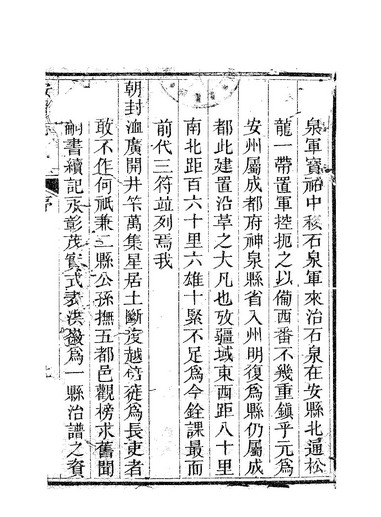 泉軍寶祐中移石泉軍來治石泉在安縣北逼松
龍一帶置軍控扼之以備西番不幾重鎮乎元為
安州屬成都府神泉縣省入州明復為縣仍屬成
都此建置沿革之大凡也攷疆域東西距八十里
南北距百六十里六雄十緊不足為今銓課最而
前代三符並列焉我
朝封洫廣開井竿萬集星居土斷庋越符徙為長吏者
敢不作何祇兼二縣公孫撫五都邑觀榜求舊聞
嗣書續記永彰茂實式表洪徽為一縣治譜之資
序